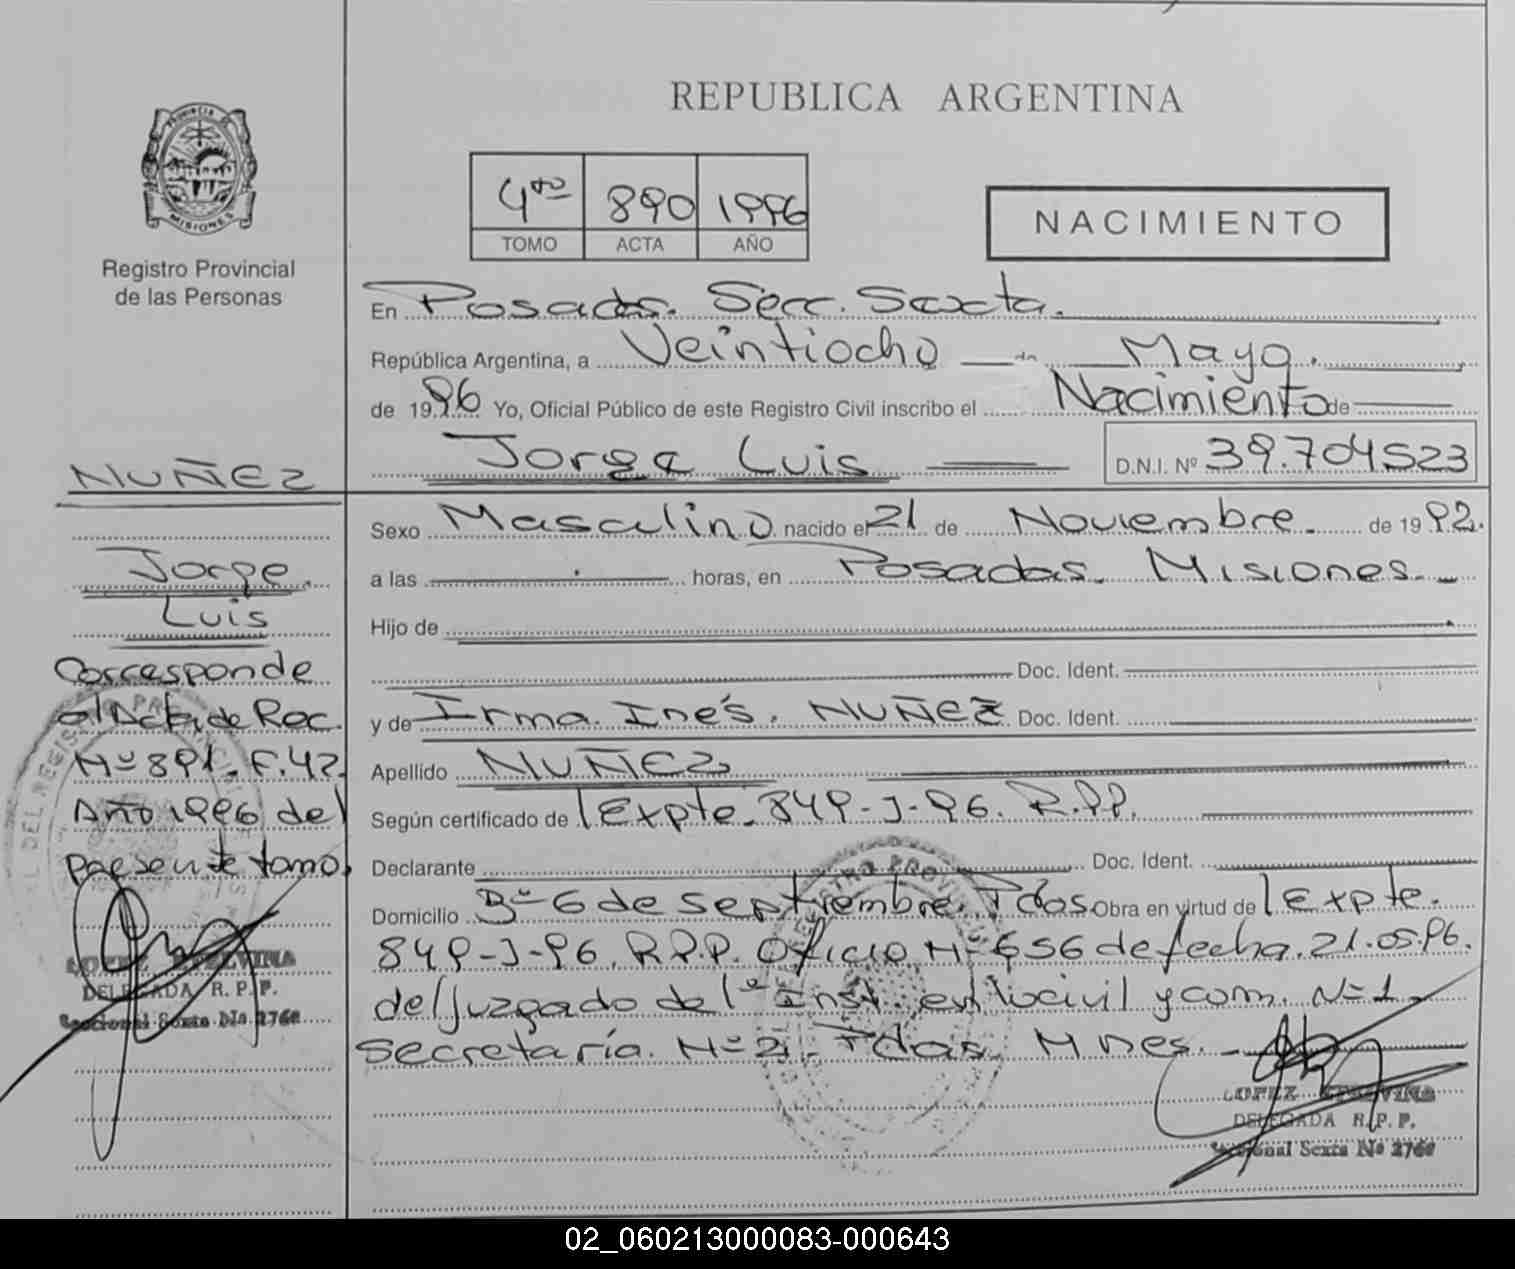 REPUBLICA ARGENTINA
PROVINCIA DE
MISIONES
Registro Provincial
de las Personas
4to 890 1996
TOMO ACTA AÑO
NACIMIENTO
En Posadas. Secc. Sexta.
República Argentina, a Veintiocho de Mayo.
de 1996 Yo, Oficial Público de este Registro Civil inscribo el Nacimiento de
Jorge Luis D.N.I. Nº 39.704523
Sexo Masculino nacido el 21 de Noviembre. de 1992.
a las horas, en Posadas. Misiones.
Hijo de
Doc. Ident.
y de Irma. Inés. NUÑEZ Doc. Ident.
Apellido NUÑEZ
Según certificado de Expte. 849-J-96. R.P.P.
Declarante Doc. Ident.
Domicilio Bº 6 de septiembre. Pdas. Obra en virtud de Expte.
849-J-96. R.P.P. Oficio Nº 656 de fecha. 21.05.96.
del Juzgado de 1ª Inst. en lo civil y com. Nº 1.
Secretaría. Nº 2. Pdas. Mnes.
LOPEZ
DELEGADA R. P. P.
Seccional Sexta Nº 2768
NUÑEZ
Jorge
Luis
Corresponde
al Acta, de Rec.
Nº 891. F. 42.
Año 1996 del
presente tomo.
LOPEZ
DELEGADA R. P. P.
Seccional Sexta Nº 2768
02_060213000083-000643